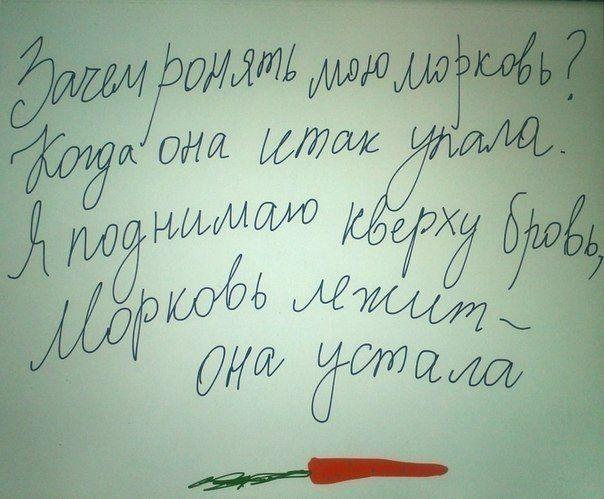 Зачем ронять мою морковь?
Когда она итак упала.
Я поднимаю кверху бровь,
Морковь лежит ~
она устала